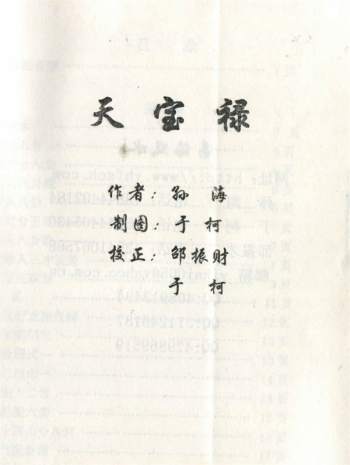 天宝禄
作者：孙 海
制图：于 柯
校正：邵振财
于 柯